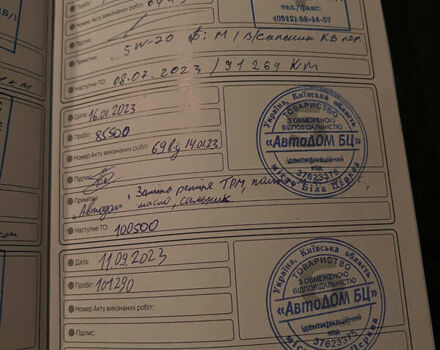 тел./факс:
(0512) 58-14-57
Підпис:
Примітки: 5W-20 Ф: М / В/салонник КВ пер.
Наступне ТО: 08.07.2023 / 91 269 КМ
Дата: 16.01.2023
Пробіг: 85500
Номер Акту виконаних робіт: 69 від 14.01.23
Підпис:
Примітки: "Автодом". Заміна ременя ГРМ,
масло, сальник
Наступне ТО: 100500
Україна, Київська область
ТОВАРИСТВО
З ОБМЕЖЕНОЮ
ВІДПОВІДАЛЬНІСТЮ
«АвтоДОМ БЦ»
ідентифікаційний
код
37623375
місто Біла Церква
Дата: 11.09.2023
Пробіг: 101290
Номер Акту виконаних робіт:
Підпис:
Україна, Київська область
ТОВАРИСТВО
З ОБМЕЖЕНОЮ
ВІДПОВІДАЛЬНІСТЮ
«АвтоДОМ БЦ»
ідентифікаційний
код
37623375